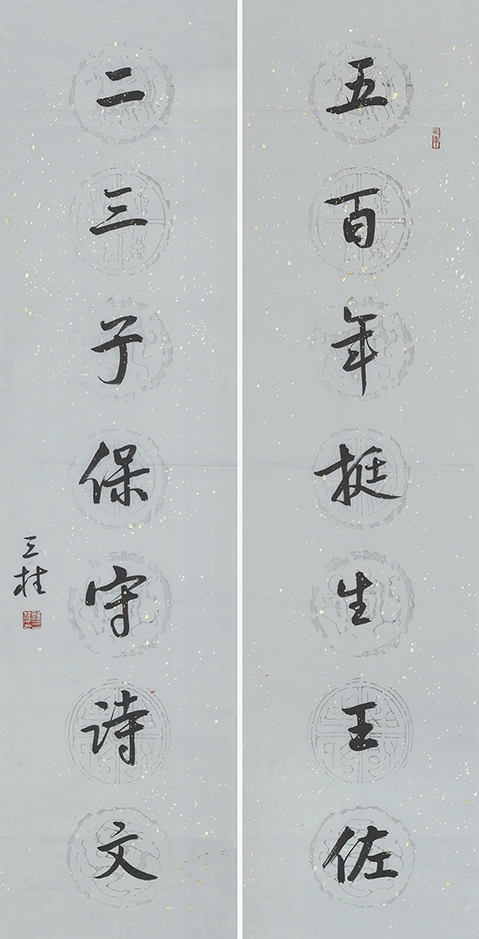 五百年挺生王佐
二三子保守诗文
三柱